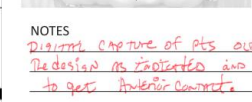 NOTES
DIGITAL CAPTURE of pts OLD
Redesign as indicated and
to get Anterior Contact.